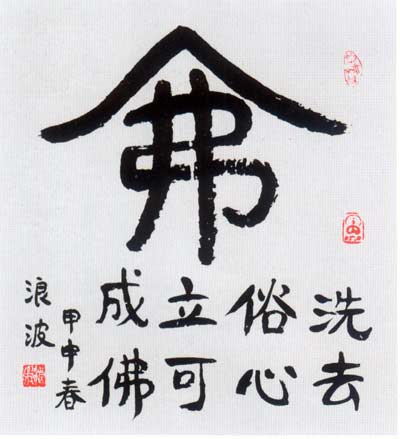 佛
洗去
俗心
立可
成佛
甲申春
浪波